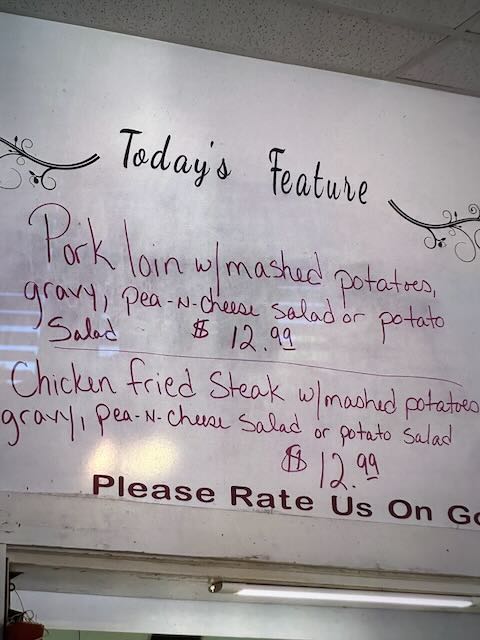 Today's Feature
Pork loin w/mashed potatoes,
gravy, pea-N-cheese salad or potato
Salad $ 12.99
Chicken fried Steak w/mashed potatoes
gravy, pea-N-cheese salad or potato salad
$ 12.99
Please Rate Us On Go